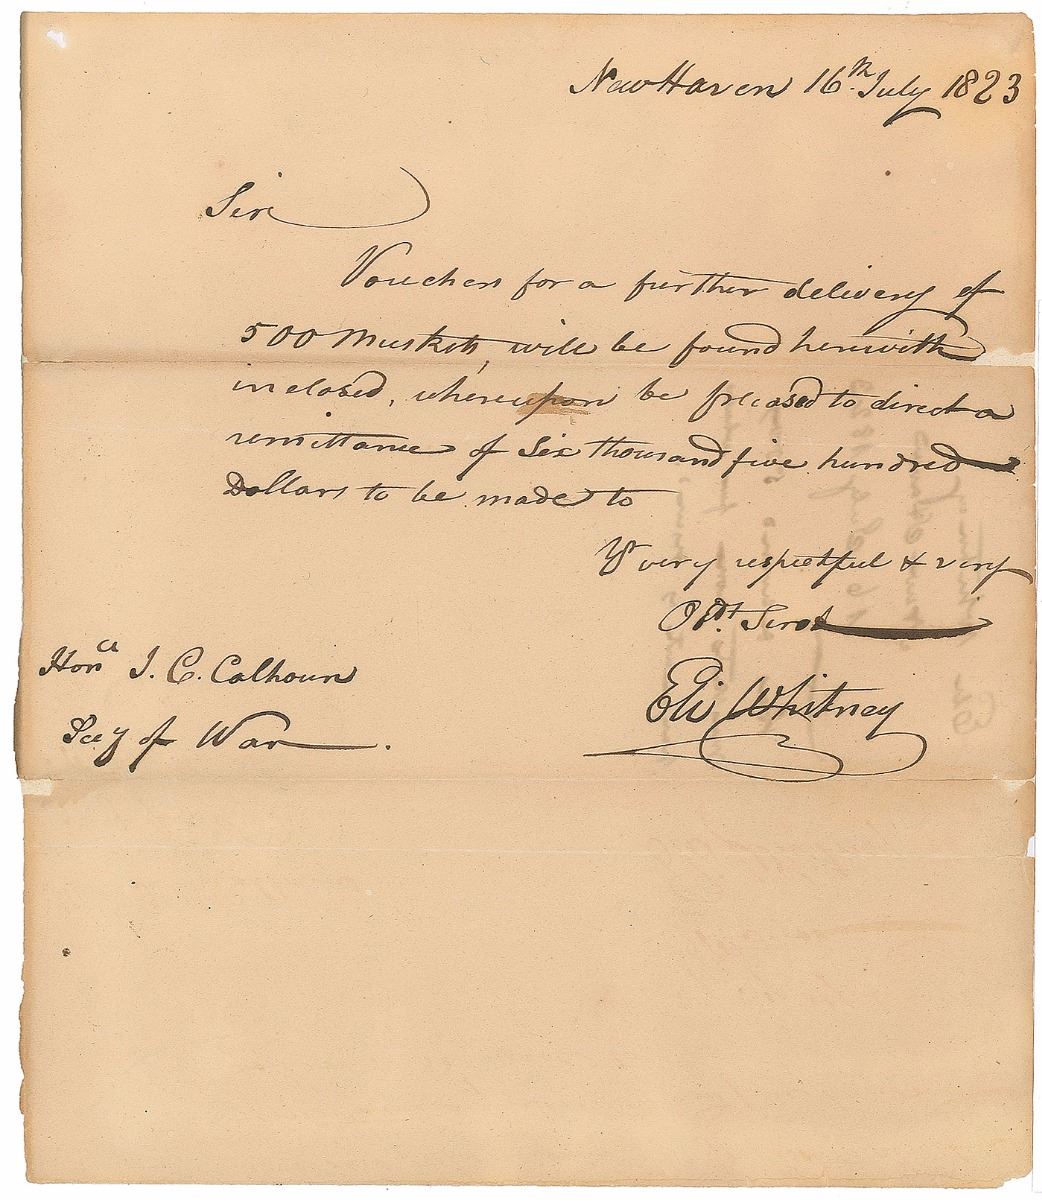 New Haven 16th July 1823
Sir
Vouchers for a further delivery of
500 Muskets, will be found herewith
inclosed, whereupon be pleased to direct a
remittance of Six thousand five hundred
Dollars to be made to
Yr very respectful & very
Obdt. Servt
Eli Whitney
Honbl J. C. Calhoun
Secy of War.